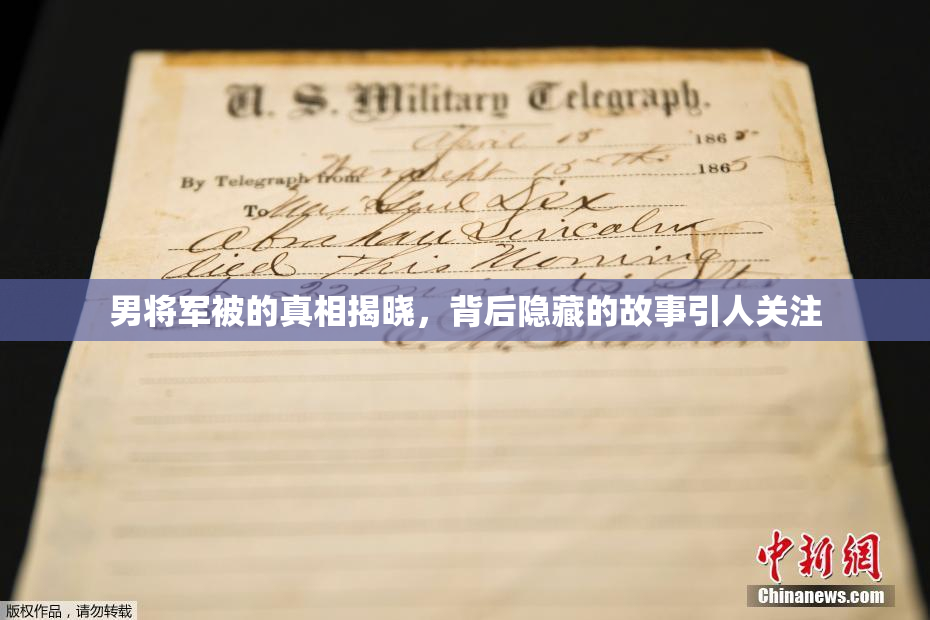 U. S. Military Telegraph.
April 15 1865
By Telegraph from War Dept 15th 1865
To Maj Genl Dix
Abraham Lincoln
died This Morning
22 minutes after
男将军被的真相揭晓，背后隐藏的故事引人关注
E. M. Stanton
中新网
Chinanews.com
版权作品，请勿转载